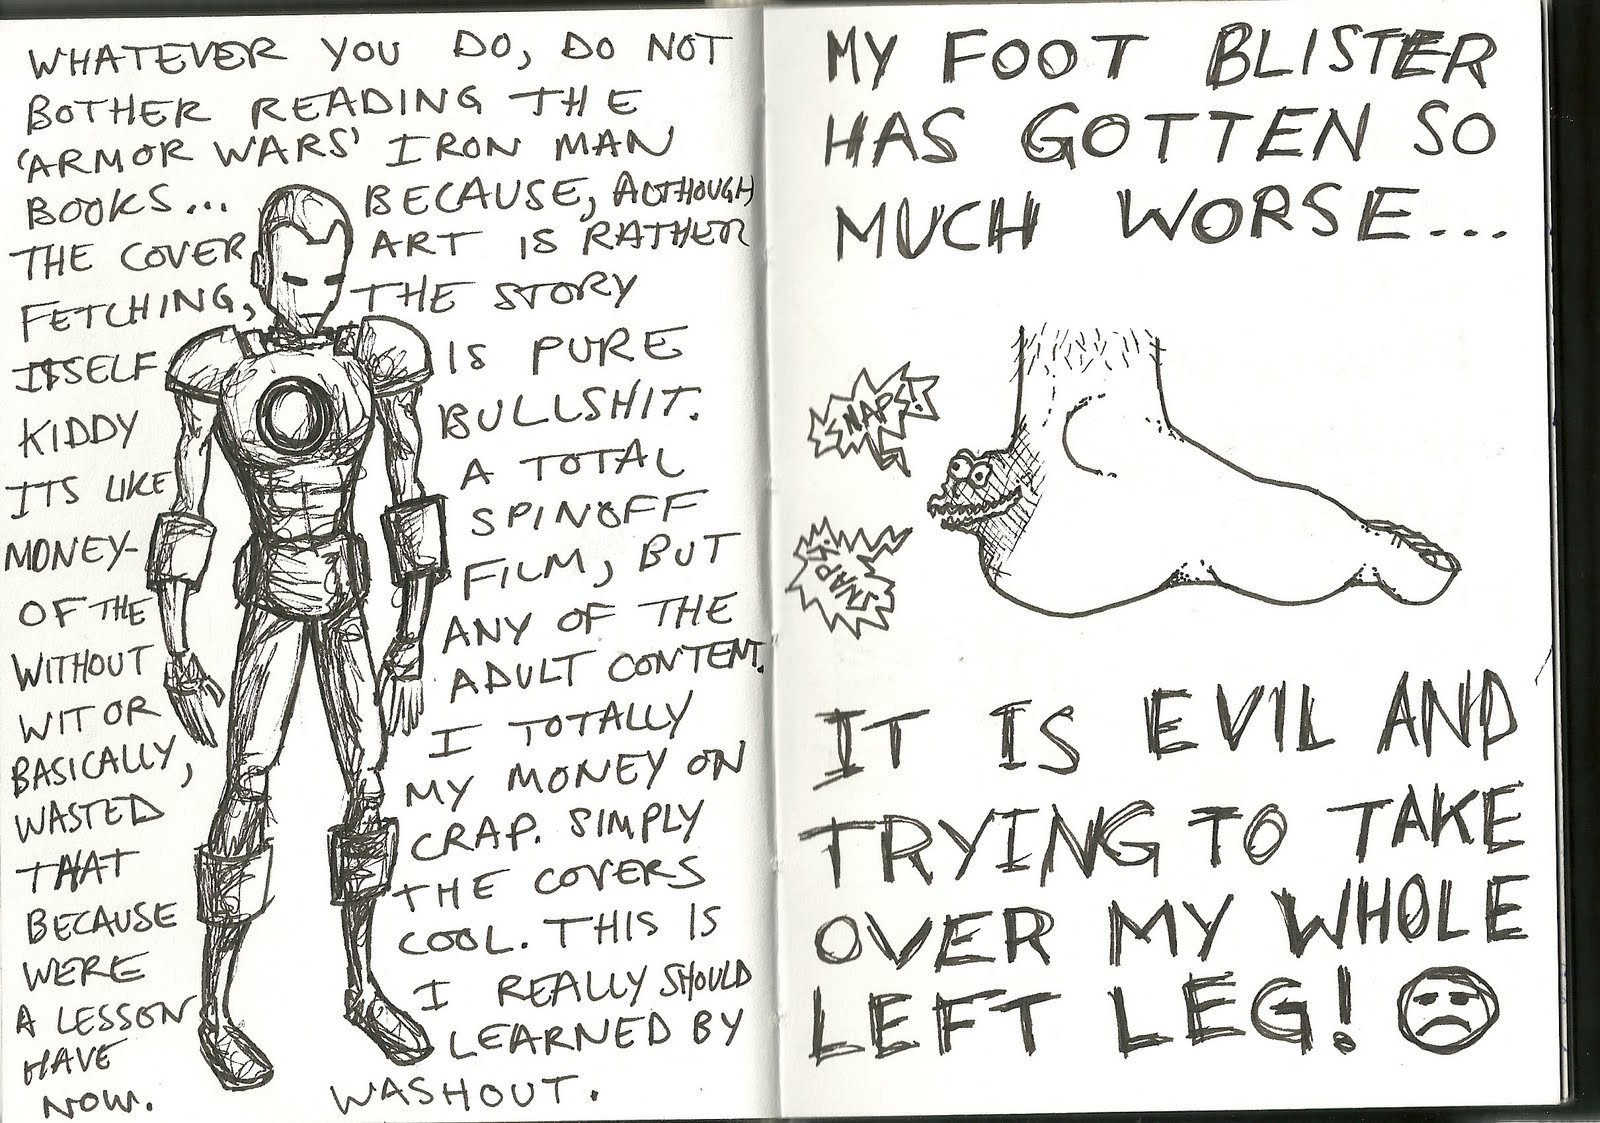 WHATEVER YOU DO, DO NOT
BOTHER READING THE
'ARMOR WARS' IRON MAN
BOOKS... BECAUSE, ALTHOUGH
THE COVER ART IS RATHER
FETCHING, THE STORY
ITSELF IS PURE
KIDDY BULLSHIT.
ITS LIKE A TOTAL
MONEY- SPINOFF
OF THE FILM, BUT
WITHOUT ANY OF THE
WIT OR ADULT CONTENT.
BASICALLY, I TOTALLY
WASTED MY MONEY ON
THAT CRAP. SIMPLY
BECAUSE THE COVERS
WERE COOL. THIS IS
A LESSON I REALLY SHOULD
HAVE LEARNED BY
NOW. WASHOUT.
MY FOOT BLISTER
HAS GOTTEN SO
MUCH WORSE...
SNAP!
SNAP!
IT IS EVIL AND
TRYING TO TAKE
OVER MY WHOLE
LEFT LEG!